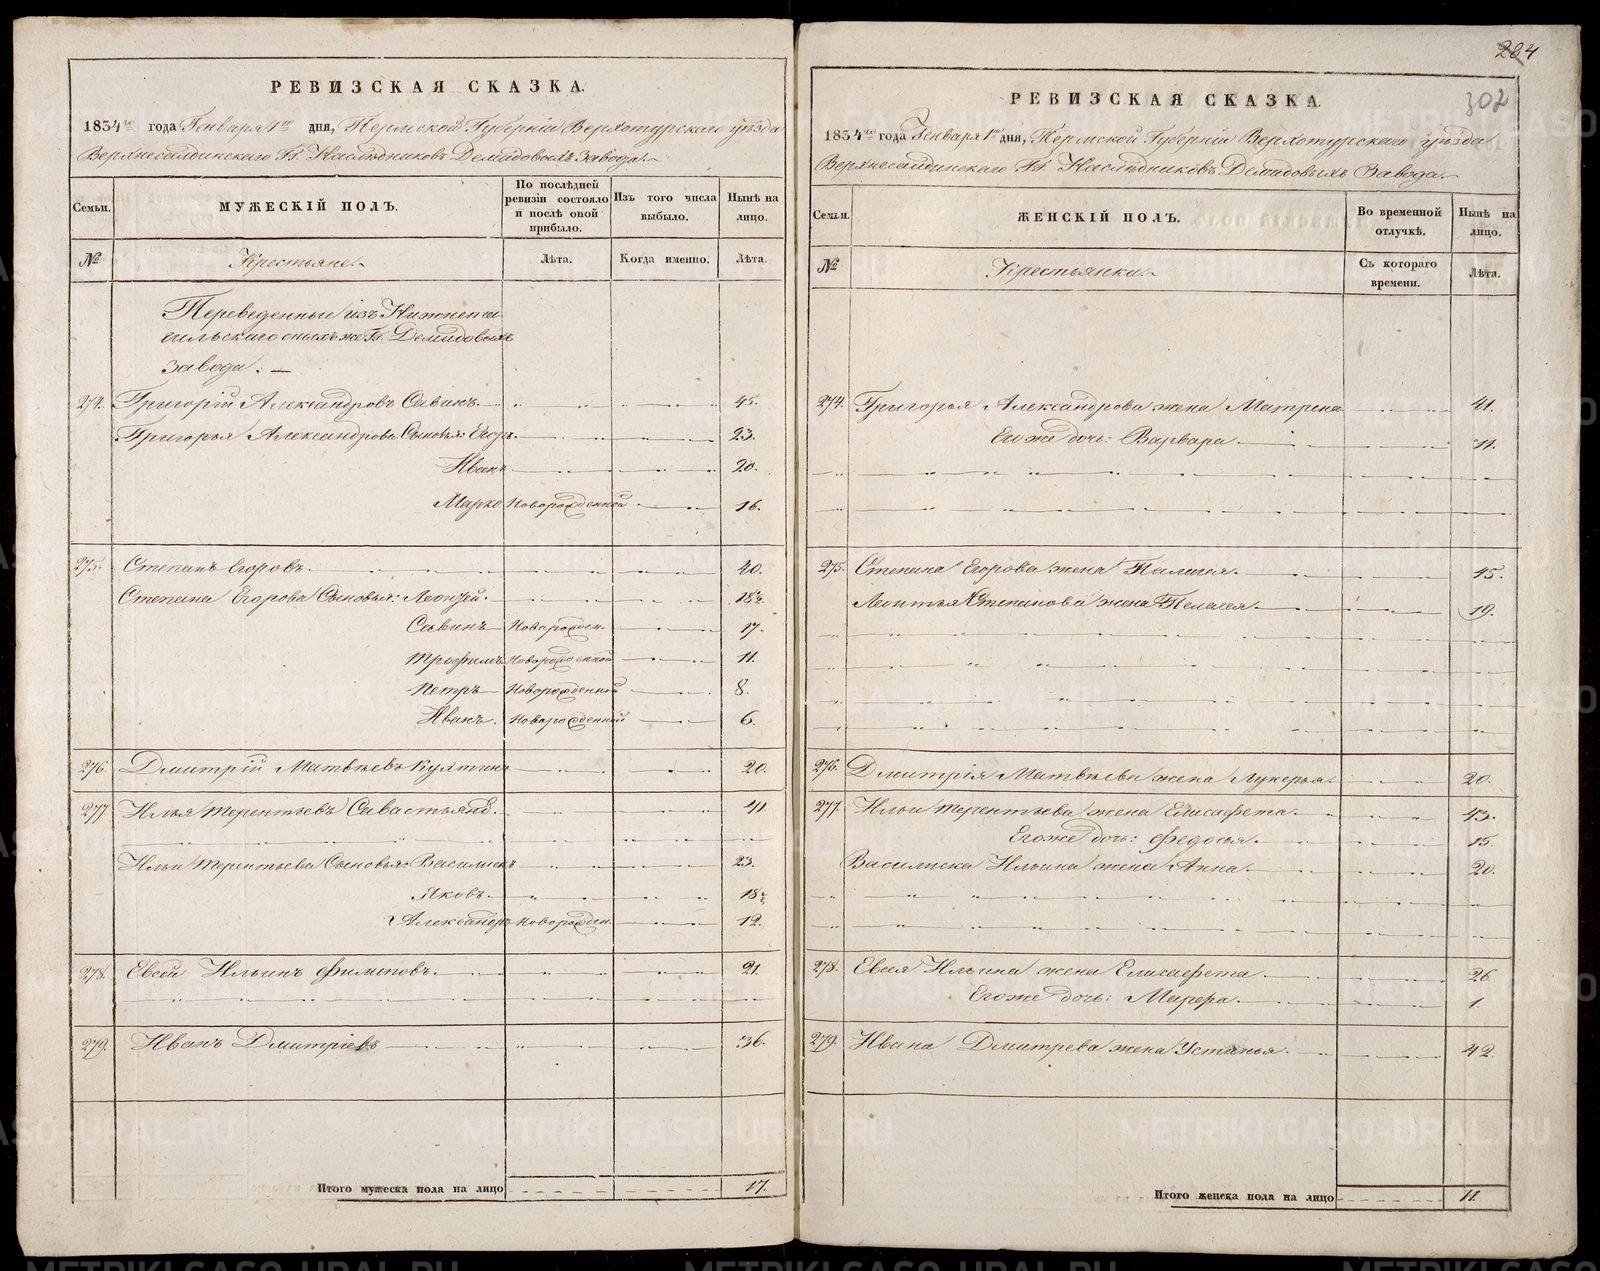 РЕВИЗСКАЯ СКАЗКА.
1834го года Генваря 1го дня, Пермской Губерніи Верхотурскаго уѣзда
Верхнесалдинскаго Гг. Наслѣдниковъ Демидовыхъ Завода.
Семьи. МУЖЕСКІЙ ПОЛЪ. По послѣдней ревизіи состояло и послѣ оной прибыло. Изъ того числа выбыло. Нынѣ на лицо.
№ Крестьяне. Лѣта. Когда именно. Лѣта.
Переведенные изъ Нижнета-
гильскаго оныхъ же Гг. Демидовыхъ
завода. —
274. Григорій Александровъ Саванъ 45.
Григорья Александрова Сыновья: Егоръ 23.
Иванъ 20.
Марко Новорожденной 16.
275. Степанъ Егоровъ. 40.
Степана Егорова Сыновья: Леонтей 18½
Саванъ Новорожден. 17.
Трофимъ Новорожденной 11.
Петръ Новорожденной 8.
Иванъ. Новорожденной 6.
276. Дмитрій Матвѣевъ 20.
277. Илья Терентьевъ 41.
Ильи Терентьева Сыновья: Василискъ 23.
Яковъ. 18½
Александръ Новорожден. 12.
278. Евсей Ильинъ Филиповъ. 21.
279. Иванъ Дмитріевъ 36.
Итого мужеска пола на лицо 17.
204
302
РЕВИЗСКАЯ СКАЗКА.
1834го года Генваря 1го дня, Пермской Губерніи Верхотурскаго уѣзда
Верхнесалдинскаго Гг. Наслѣдниковъ Демидовыхъ Завода.
Семьи. ЖЕНСКІЙ ПОЛЪ. Во временной отлучкѣ. Нынѣ на лицо.
№ Крестьянки. Съ котораго времени. Лѣта.
274. Григорья Александрова жена Матрена 41.
Его же дочь: Варвара. 11.
275. Степана Егорова жена Палагея. 45.
Леонтья Степанова жена Пелагея. 19.
276. Дмитрія Матвѣева жена Лукерья. 20.
277. Ильи Терентьева жена Елисафета. 43.
Его же дочь: Федосья. 15.
Василиска Ильина жена Анна. 20.
278. Евсея Ильина жена Елисафета. 26
Его же дочь: Марфа. 1.
279. Ивана Дмитрева жена Устинья. 42.
Итого женска пола на лицо 11.
METRIKI.GASO-URAL.RU